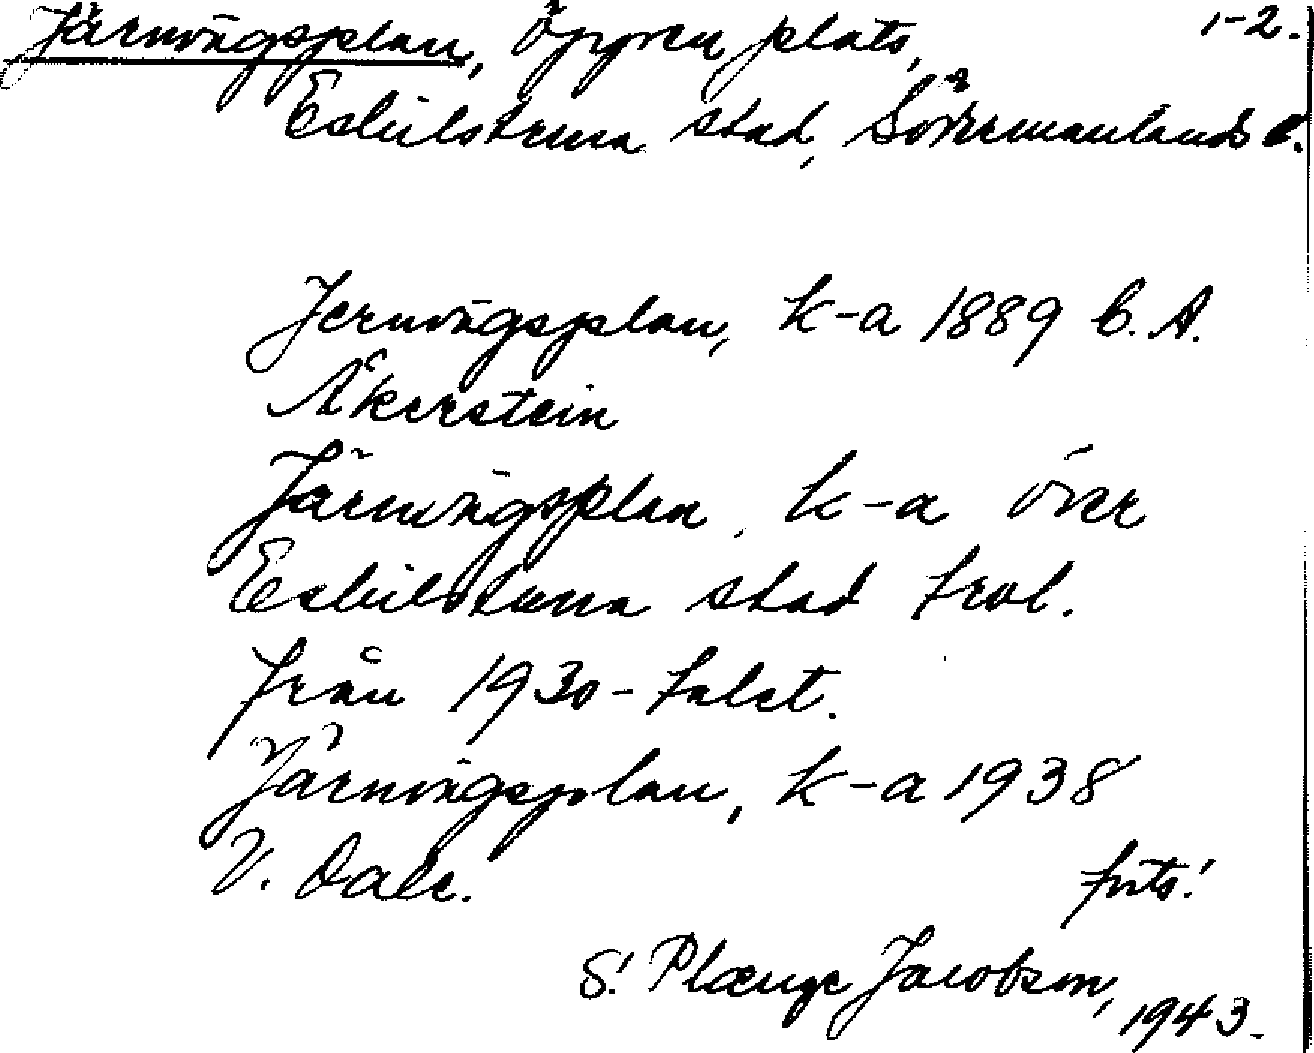 Järnvägsplan, öppen plats, 1-2.
Eskilstuna stad, Södermanlands l.
Jernvägsplan, k-a 1889 C. A.
Åkerstein
Järnvägsplan, k-a över
Eskilstuna stad trol.
från 1930-talet.
Järnvägsplan, k-a 1938
V. Dale.
forts!
S. Plænge Jacobson, 1943.